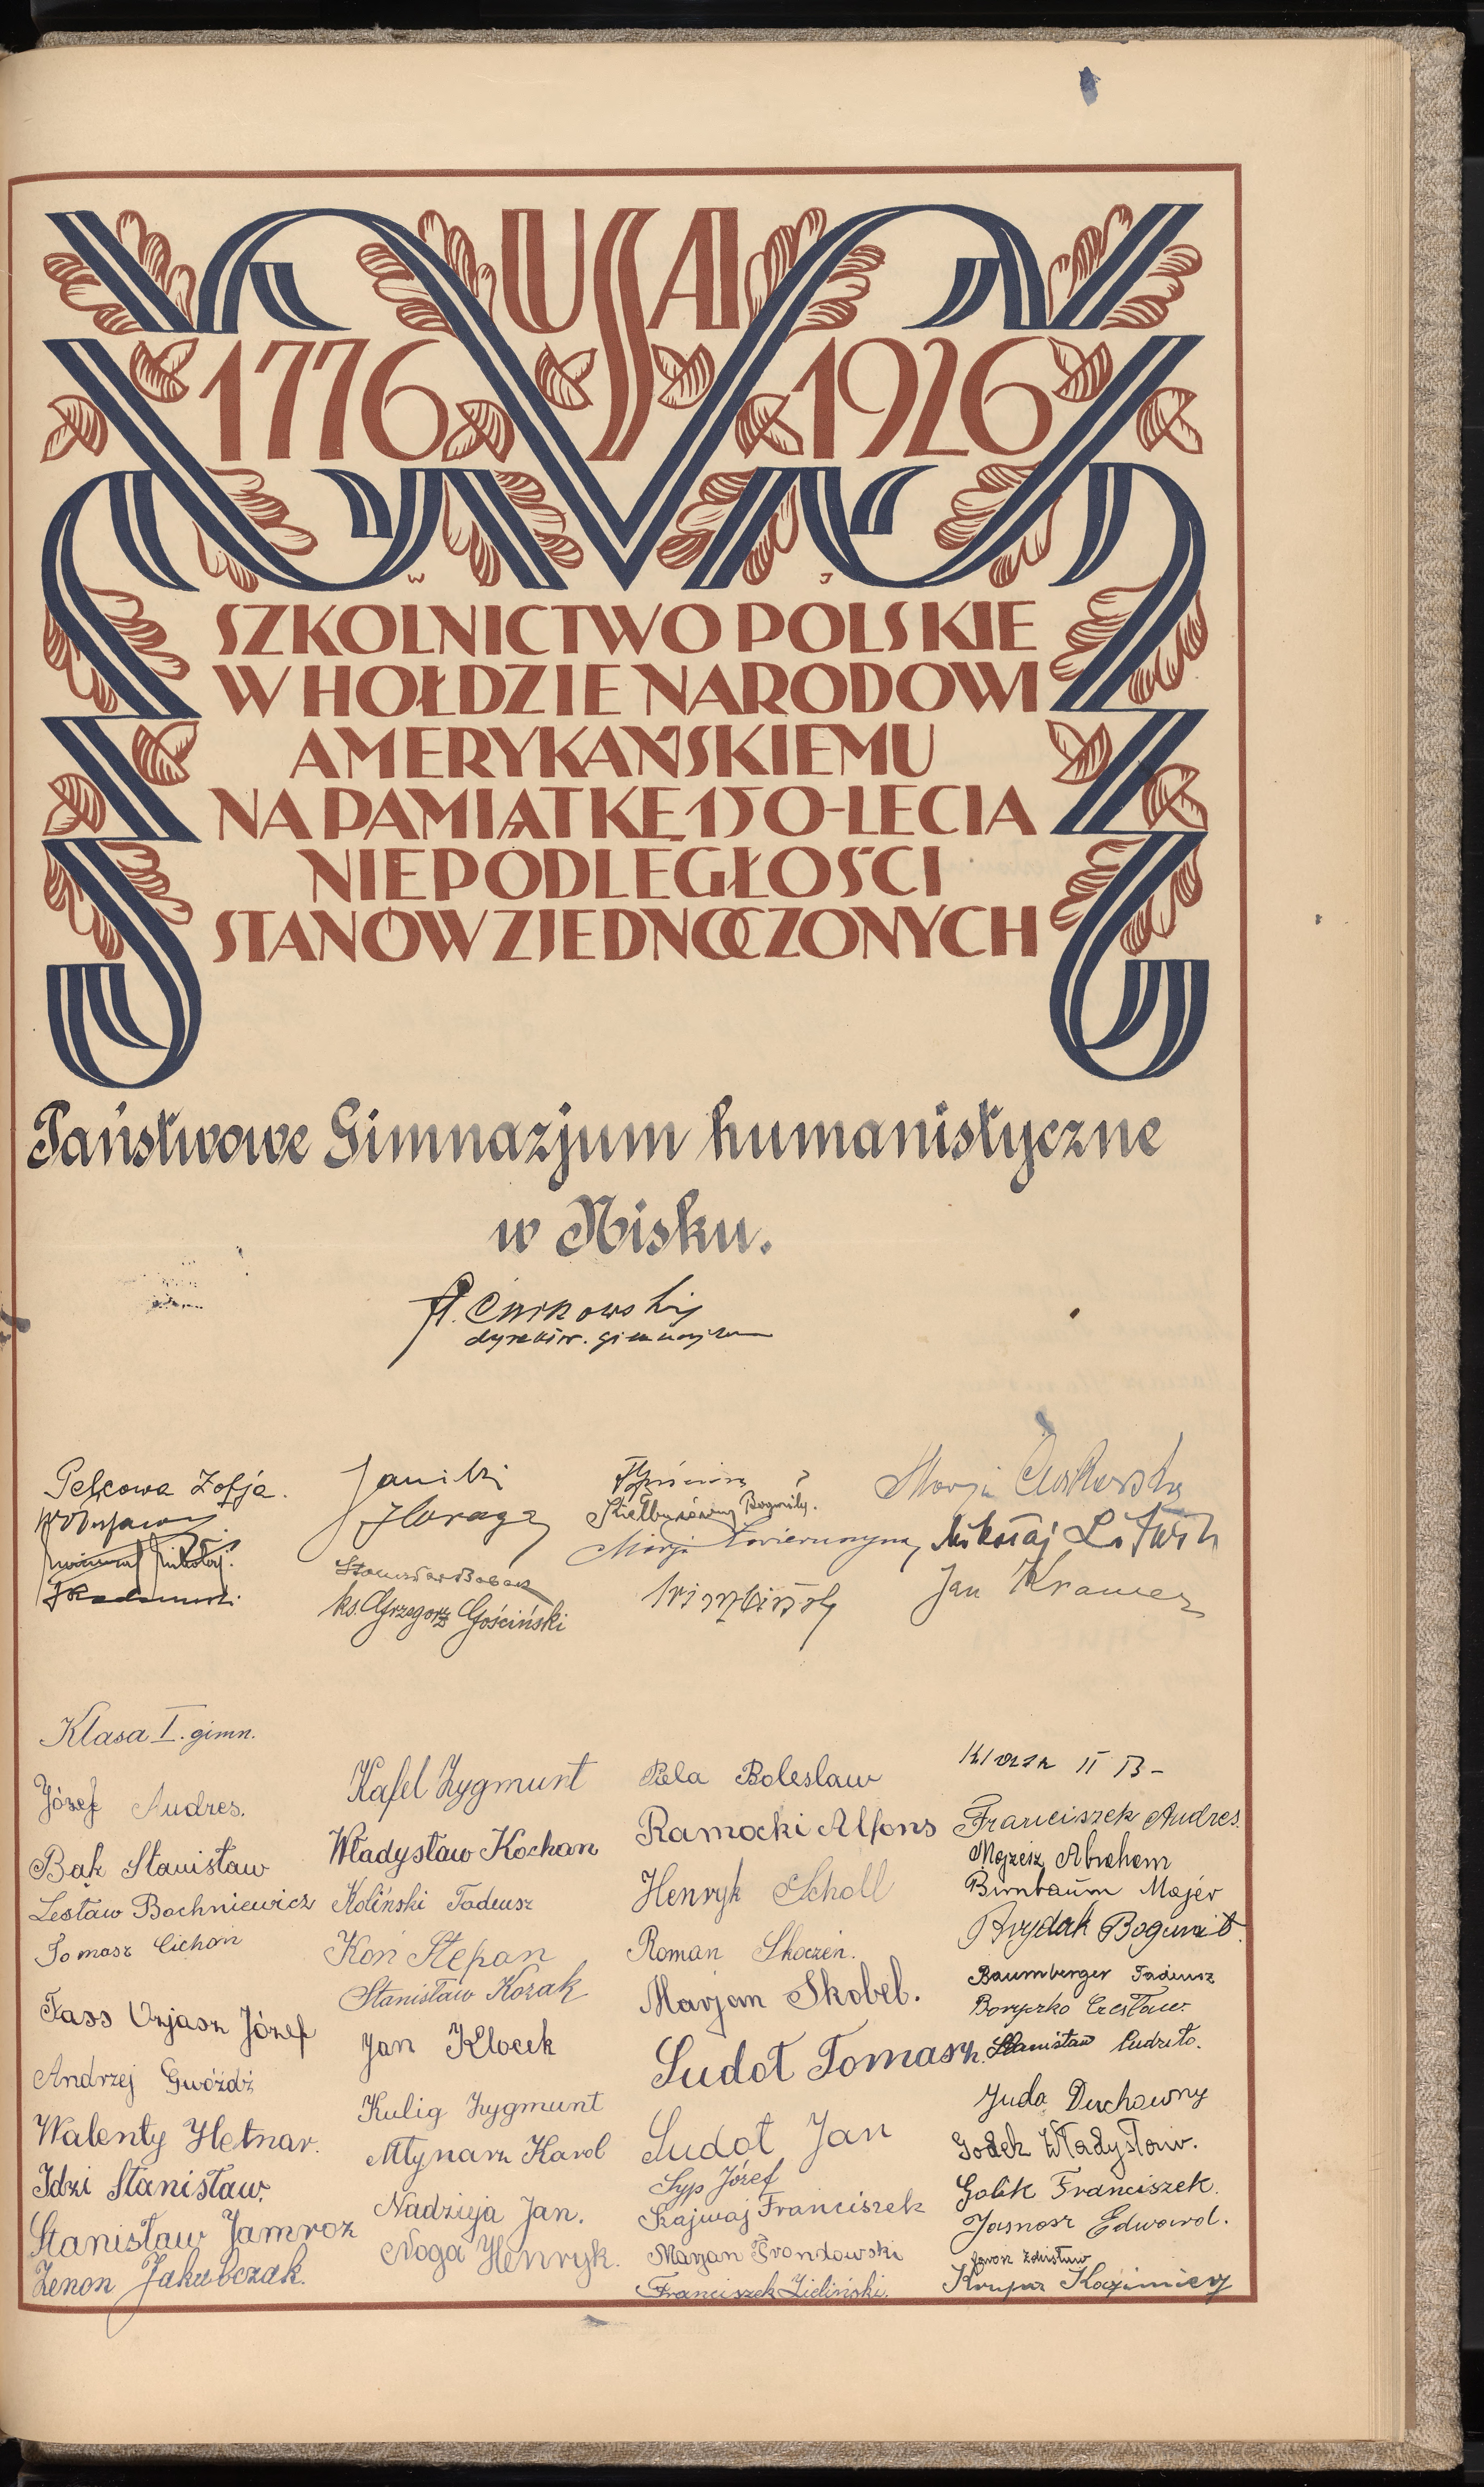 USA
1776 1926
W J
SZKOLNICTWO POLSKIE
W HOŁDZIE NARODOWI
AMERYKAŃSKIEMU
NA PAMIĄTKĘ 150-LECIA
NIEPODLEGŁOŚCI
STANÓW ZJEDNOCZONYCH
Państwowe Gimnazjum humanistyczne
w Nisku.
dyrektor. gimnazjum
Pelcowa Zofja.
ks. Grzegorz Gościński
Marja
Mikołaj Litwin
Jan Kramer
Klasa I. gimn.
Józef Andres.
Bąk Stanisław
Lesław Bochniewicz
Tomasz Cichoń
Fass Urjasz Józef
Andrzej Gwóźdź
Walenty Hetnar.
Idzi Stanisław.
Stanisław Jamroz
Zenon Jakubczak.
Kafel Zygmunt
Władysław Kochan
Koliński Tadeusz
Koń Stefan
Stanisław Kozak
Jan Klocek
Kulig Zygmunt
Młynarz Karol
Nadzieja Jan.
Noga Henryk.
Pela Bolesław
Ramocki Alfons
Henryk Scholl
Roman Skoczeń.
Marjan Skobel.
Sudoł Tomasz.
Sudoł Jan
Syp Józef
Szajwaj Franciszek
Marjan Trondowski
Franciszek Zieliński.
Klasa II B-
Franciszek Andres.
Mojżesz Abraham
Birnbaum Majer
Brydak Bogumił.
Baumberger Tadeusz
Boryczko Czesław.
Stanisław Cudziło.
Juda Duchowny
Godek Władysław.
Golik Franciszek.
Jasnosz Edward.
Jarosz Zdzisław
Krupa Kazimierz